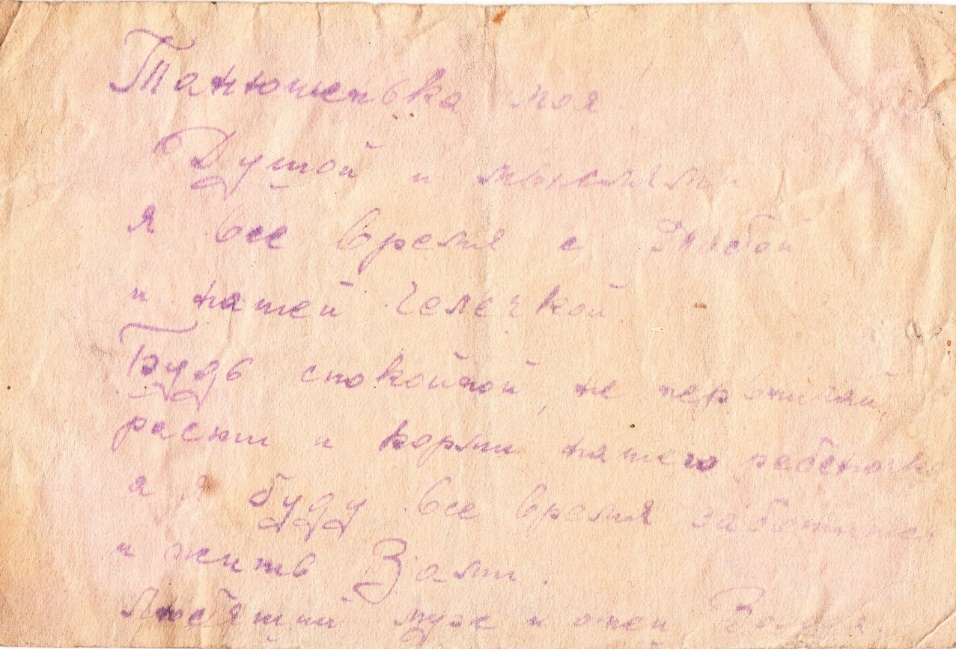 Танюшенька моя
Душой и мыслями
я все время с Тобой
и нашей Гелечкой.
Будь спокойной, не нервничай,
расти и корми нашего ребеночка
а я буду все время заботиться
и жить Вами.
Любящий муж и отец